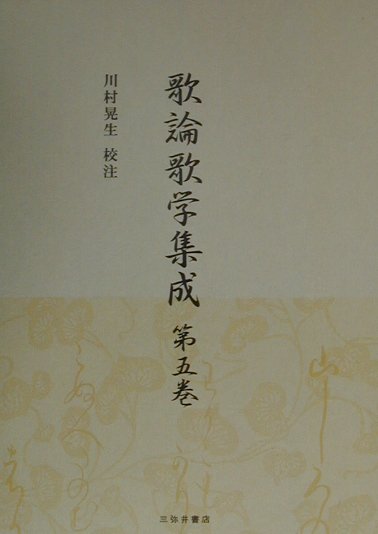 歌論歌学集成 第五巻
川村晃生 校注
三弥井書店